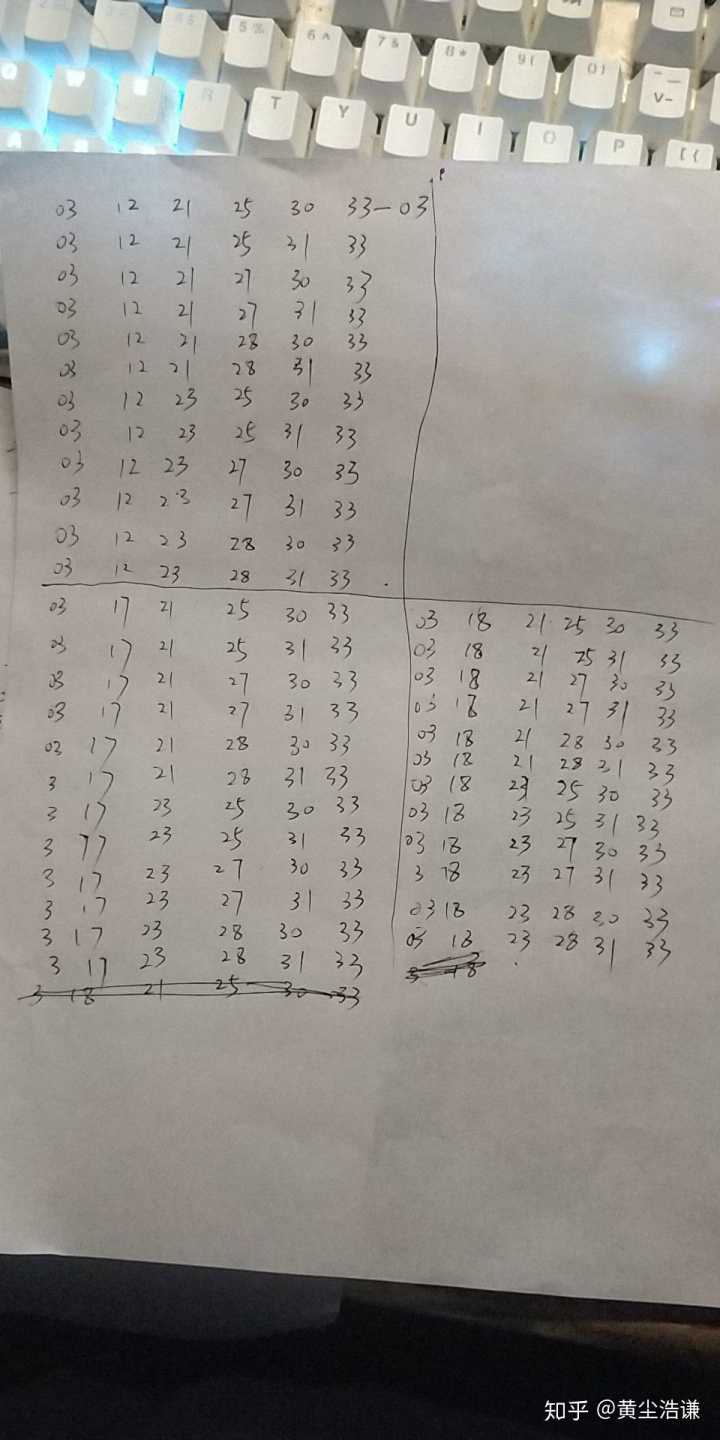 5 %
6 ^
7 &
8 *
9 (
0 )
W
R
T
Y
U
I
O
P
[ {
03 12 21 25 30 33-03
03 12 21 25 31 33
03 12 21 27 30 33
03 12 21 27 31 33
03 12 21 28 30 33
03 12 21 28 31 33
03 12 23 25 30 33
03 12 23 25 31 33
03 12 23 27 30 33
03 12 23 27 31 33
03 12 23 28 30 33
03 12 23 28 31 33
03 17 21 25 30 33
03 17 21 25 31 33
03 17 21 27 30 33
03 17 21 27 31 33
03 17 21 28 30 33
3 17 21 28 31 33
3 17 23 25 30 33
3 17 23 25 31 33
3 17 23 27 30 33
3 17 23 27 31 33
3 17 23 28 30 33
3 17 23 28 31 33
3 18 21 25 30 33
03 18 21 25 30 33
03 18 21 25 31 33
03 18 21 27 30 33
03 18 21 27 31 33
03 18 21 28 30 33
03 18 21 28 31 33
03 18 23 25 30 33
03 18 23 25 31 33
03 18 23 27 30 33
3 18 23 27 31 33
03 18 23 28 30 33
03 18 23 28 31 33
3 18
知乎 @黄尘浩谦